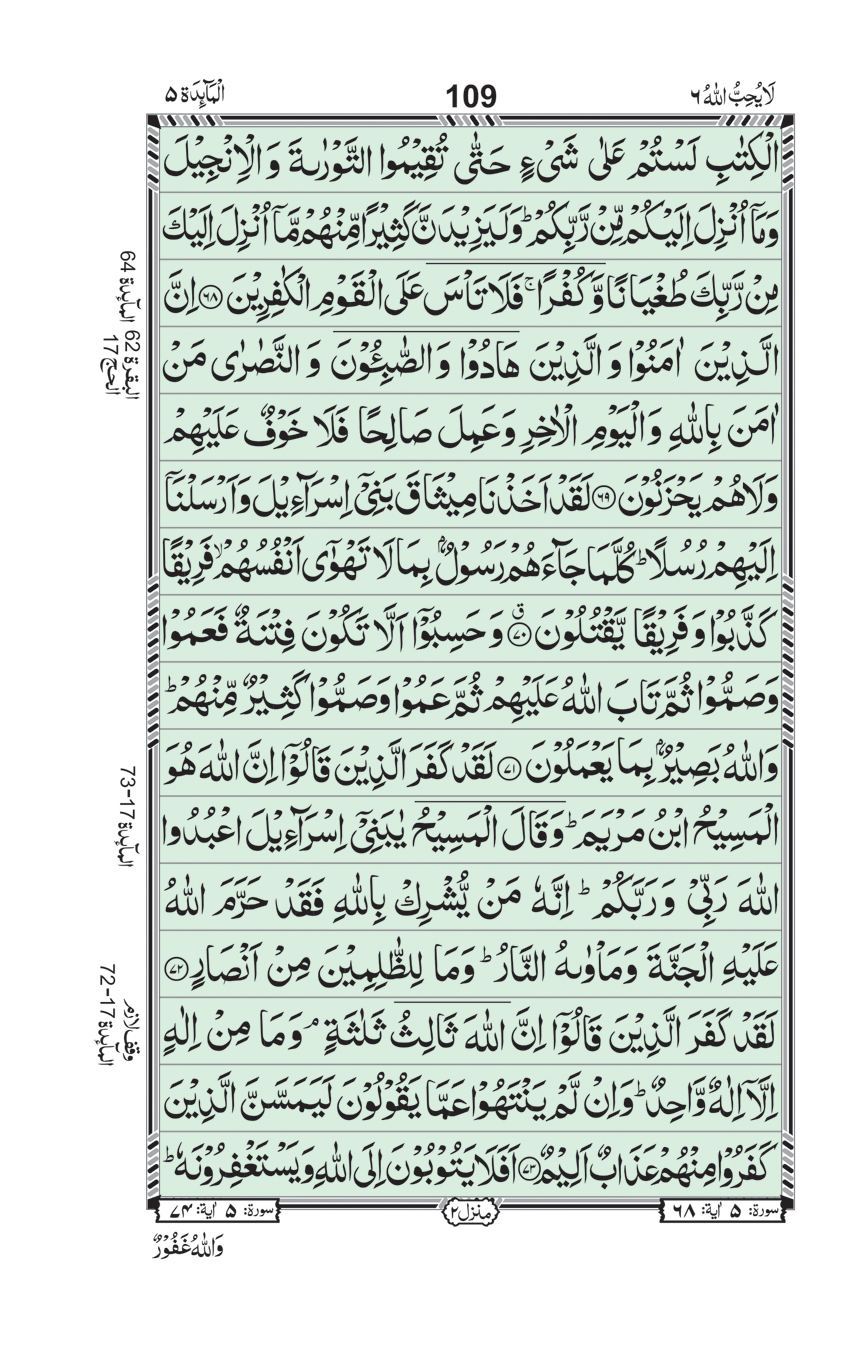 لَا يُحِبُّ اللّٰهُ ۶
109
الْمَآئِدَة ۵
الْكِتٰبِ لَسْتُمْ عَلٰى شَىْءٍ حَتّٰى تُقِيْمُوا التَّوْرٰىةَ وَ الْاِنْجِيْلَ
وَمَاۤ اُنْزِلَ اِلَيْكُمْ مِّنْ رَّبِّكُمْ ؕ وَلَيَزِيْدَنَّ كَثِيْرًا مِّنْهُمْ مَّاۤ اُنْزِلَ اِلَيْكَ
مِنْ رَّبِّكَ طُغْيَانًا وَّكُفْرًا ۚ فَلَا تَاْسَ عَلَى الْقَوْمِ الْكٰفِرِيْنَ ۝۶۸ اِنَّ
الَّذِيْنَ اٰمَنُوْا وَ الَّذِيْنَ هَادُوْا وَ الصّٰبِـُٔوْنَ وَ النَّصٰرٰى مَنْ
اٰمَنَ بِاللّٰهِ وَ الْيَوْمِ الْاٰخِرِ وَعَمِلَ صَالِحًا فَلَا خَوْفٌ عَلَيْهِمْ
وَلَا هُمْ يَحْزَنُوْنَ ۝۶۹ لَقَدْ اَخَذْنَا مِيْثَاقَ بَنِىْۤ اِسْرَآءِيْلَ وَاَرْسَلْنَاۤ
اِلَيْهِمْ رُسُلًا ؕ كُلَّمَا جَآءَهُمْ رَسُوْلٌۢ بِمَا لَا تَهْوٰٓى اَنْفُسُهُمْ ۙ فَرِيْقًا
كَذَّبُوْا وَ فَرِيْقًا يَّقْتُلُوْنَ ۝۷۰ ق وَ حَسِبُوْۤا اَلَّا تَكُوْنَ فِتْنَةٌ فَعَمُوْا
وَصَمُّوْا ثُمَّ تَابَ اللّٰهُ عَلَيْهِمْ ثُمَّ عَمُوْا وَصَمُّوْا كَثِيْرٌ مِّنْهُمْ ؕ
وَاللّٰهُ بَصِيْرٌۢ بِمَا يَعْمَلُوْنَ ۝۷۱ لَقَدْ كَفَرَ الَّذِيْنَ قَالُوْۤا اِنَّ اللّٰهَ هُوَ
الْمَسِيْحُ ابْنُ مَرْيَمَ ؕ وَقَالَ الْمَسِيْحُ يٰبَنِىْۤ اِسْرَآءِيْلَ اعْبُدُوا
اللّٰهَ رَبِّىْ وَ رَبَّكُمْ ؕ اِنَّهٗ مَنْ يُّشْرِكْ بِاللّٰهِ فَقَدْ حَرَّمَ اللّٰهُ
عَلَيْهِ الْجَنَّةَ وَمَاْوٰىهُ النَّارُ ؕ وَمَا لِلظّٰلِمِيْنَ مِنْ اَنْصَارٍ ۝۷۲
لَقَدْ كَفَرَ الَّذِيْنَ قَالُوْۤا اِنَّ اللّٰهَ ثَالِثُ ثَلٰثَةٍ ۘ وَمَا مِنْ اِلٰهٍ
اِلَّاۤ اِلٰهٌ وَّاحِدٌ ؕ وَاِنْ لَّمْ يَنْتَهُوْا عَمَّا يَقُوْلُوْنَ لَيَمَسَّنَّ الَّذِيْنَ
كَفَرُوْا مِنْهُمْ عَذَابٌ اَلِيْمٌ ۝۷۳ اَفَلَا يَتُوْبُوْنَ اِلَى اللّٰهِ وَيَسْتَغْفِرُوْنَهٗ ؕ
سورة: ۵ اٰية: ۶۸
منزل ۲
سورة: ۵ اٰية: ۷۴
وَاللّٰهُ غَفُوْرٌ
المآئدة 64
البقرة 62
الحج 17
المآئدة 17-73
وقف لازم
المآئدة 17-72